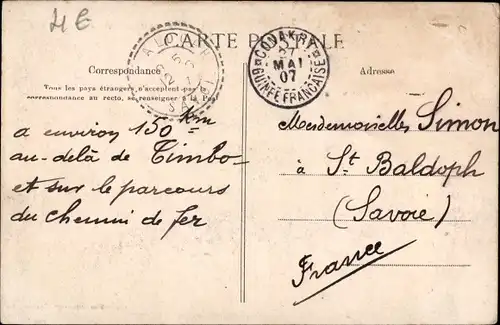 4 €
CARTE POSTALE
CONAKRY
27
MAI
07
GUINÉE FRANÇAISE
Correspondance
Adresse
Tous les pays étrangers n'acceptent pas
correspondance au recto, se renseigner à la Poste
a environ 150 km
au-delà de Timbo
et sur le parcours
du chemin de fer
Mesdemoiselles Simon
à St Baldoph
(Savoie)
France